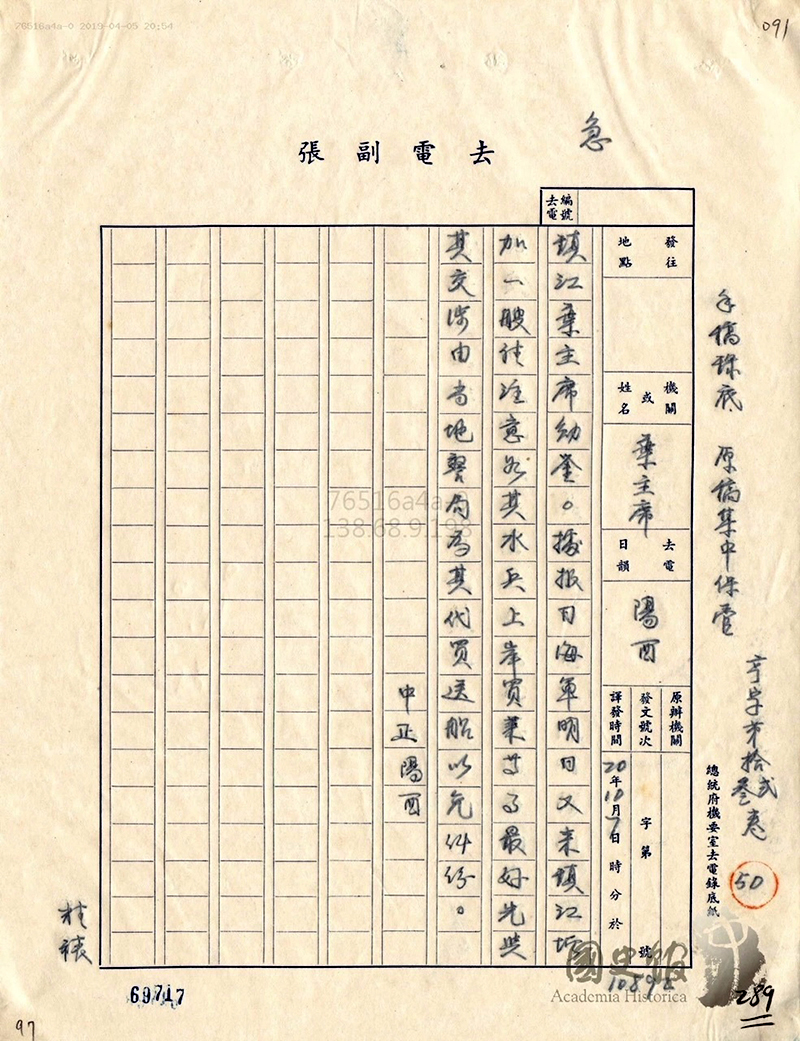 76516a4a-0 2019-04-05 20:54
091
急
去電副張
去電編號
發往地點
機關或姓名
葉主席
去電日韻
陽酉
原辦機關
發文號次
字第 號
譯發時間
20年10月7日 時 分 於
10892
鎮江葉主席勛鑒。據報日海軍明日又來鎮江
加一艘佳注意如其水兵上岸買菜等事最好先與
其交涉由當地警局為其代買送船以免糾紛。
中正陽酉
手稿錄底 原稿集中保管
亨字第拾貳叁卷
50
總統府機要室去電錄底紙
76516a4a-0
138.68.9.198
69717
國史館
Academia Historica
289
97